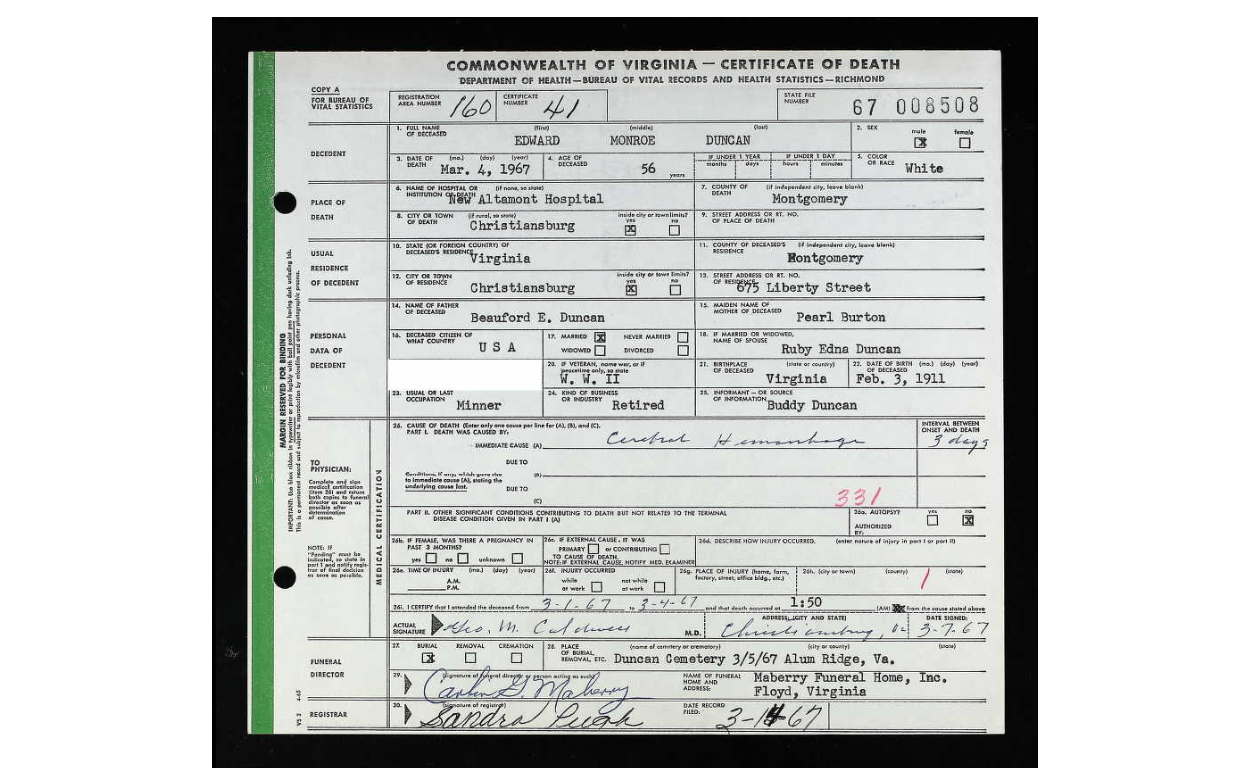 COMMONWEALTH OF VIRGINIA — CERTIFICATE OF DEATH
DEPARTMENT OF HEALTH—BUREAU OF VITAL RECORDS AND HEALTH STATISTICS—RICHMOND
COPY A
FOR BUREAU OF VITAL STATISTICS
REGISTRATION AREA NUMBER 160 CERTIFICATE NUMBER 41 STATE FILE NUMBER 67 008508
DECEDENT
1. FULL NAME OF DECEASED (first) EDWARD (middle) MONROE (last) DUNCAN 2. SEX male X female
3. DATE OF DEATH (mo.) (day) (year) Mar. 4, 1967 4. AGE OF DECEASED 56 years IF UNDER 1 YEAR months days IF UNDER 1 DAY hours minutes 5. COLOR OR RACE White
PLACE OF DEATH
6. NAME OF HOSPITAL OR INSTITUTION OF DEATH (if none, so state) New Altamont Hospital 7. COUNTY OF DEATH (if independent city, leave blank) Montgomery
8. CITY OR TOWN OF DEATH (if rural, so state) Christiansburg inside city or town limits? yes X no 9. STREET ADDRESS OR RT. NO. OF PLACE OF DEATH
USUAL RESIDENCE OF DECEDENT
10. STATE (OR FOREIGN COUNTRY) OF DECEASED'S RESIDENCE Virginia 11. COUNTY OF DECEASED'S RESIDENCE (if independent city, leave blank) Montgomery
12. CITY OR TOWN OF RESIDENCE Christiansburg inside city or town limits? yes X no 13. STREET ADDRESS OR RT. NO. OF RESIDENCE 675 Liberty Street
PERSONAL DATA OF DECEDENT
14. NAME OF FATHER OF DECEASED Beauford E. Duncan 15. MAIDEN NAME OF MOTHER OF DECEASED Pearl Burton
16. DECEASED CITIZEN OF WHAT COUNTRY U S A 17. MARRIED X NEVER MARRIED WIDOWED DIVORCED 18. IF MARRIED OR WIDOWED, NAME OF SPOUSE Ruby Edna Duncan
20. IF VETERAN, name war, or if peacetime only, so state W. W. II 21. BIRTHPLACE OF DECEASED (state or country) Virginia 22. DATE OF BIRTH OF DECEASED (mo.) (day) (year) Feb. 3, 1911
23. USUAL OR LAST OCCUPATION Minner 24. KIND OF BUSINESS OR INDUSTRY Retired 25. INFORMANT – OR SOURCE OF INFORMATION Buddy Duncan
MARGIN RESERVED FOR BINDING
TO PHYSICIAN:
Complete and sign medical certification (item 26) and return both copies to funeral director as soon as possible after determination of cause.
NOTE: IF "Pending" must be indicated, so state in part 1 and notify registrar of final decision as soon as possible.
MEDICAL CERTIFICATION
26. CAUSE OF DEATH (Enter only one cause per line for (A), (B), and (C).
PART I. DEATH WAS CAUSED BY:
IMMEDIATE CAUSE (A) Cerebral Hemorrhage INTERVAL BETWEEN ONSET AND DEATH 3 days
DUE TO
Conditions, if any, which gave rise to immediate cause (A), stating the underlying cause last. (B)
DUE TO
(C)
331
PART II. OTHER SIGNIFICANT CONDITIONS CONTRIBUTING TO DEATH BUT NOT RELATED TO THE TERMINAL DISEASE CONDITION GIVEN IN PART I (A) 26a. AUTOPSY? yes no X AUTHORIZED BY:
26b. IF FEMALE, WAS THERE A PREGNANCY IN PAST 3 MONTHS? yes no unknown 26c. IF EXTERNAL CAUSE, IT WAS PRIMARY or CONTRIBUTING TO CAUSE OF DEATH. NOTE: IF EXTERNAL CAUSE, NOTIFY MED. EXAMINER 26d. DESCRIBE HOW INJURY OCCURRED. (enter nature of injury in part I or part II)
26e. TIME OF INJURY (mo.) (day) (year) A.M. P.M. 26f. INJURY OCCURRED while at work not while at work 26g. PLACE OF INJURY (home, farm, factory, street, office bldg., etc.) 26h. (city or town) (county) (state)
26i. I CERTIFY that I attended the deceased from 3-1-67 to 3-4-67 and that death occurred at 1:50 (AM) from the cause stated above
ACTUAL SIGNATURE Geo. M. Caldwell M.D. ADDRESS, (CITY AND STATE) Christiansburg, Va DATE SIGNED: 3-7-67
FUNERAL DIRECTOR
27. BURIAL X REMOVAL CREMATION 28. PLACE OF BURIAL, REMOVAL, ETC. (name of cemetery or crematory) (city or county) (state) Duncan Cemetery 3/5/67 Alum Ridge, Va.
29. (signature of funeral director or person acting as such) NAME OF FUNERAL HOME AND ADDRESS: Maberry Funeral Home, Inc.
Floyd, Virginia
REGISTRAR
30. (signature of registrar) Sandra DATE RECORD FILED: 67
VS 2